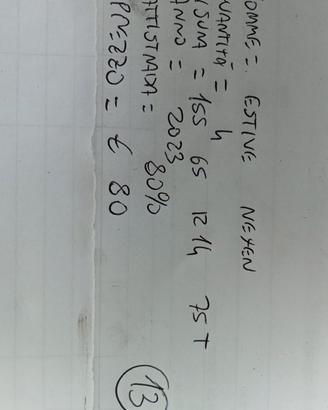 OMME = ESTINE NEXEN
UANTITÀ = 4
ISURA = 155 65 R 14 75 T
ANNO = 2023
ATTISTRADA = 80%
PREZZO = € 80
13